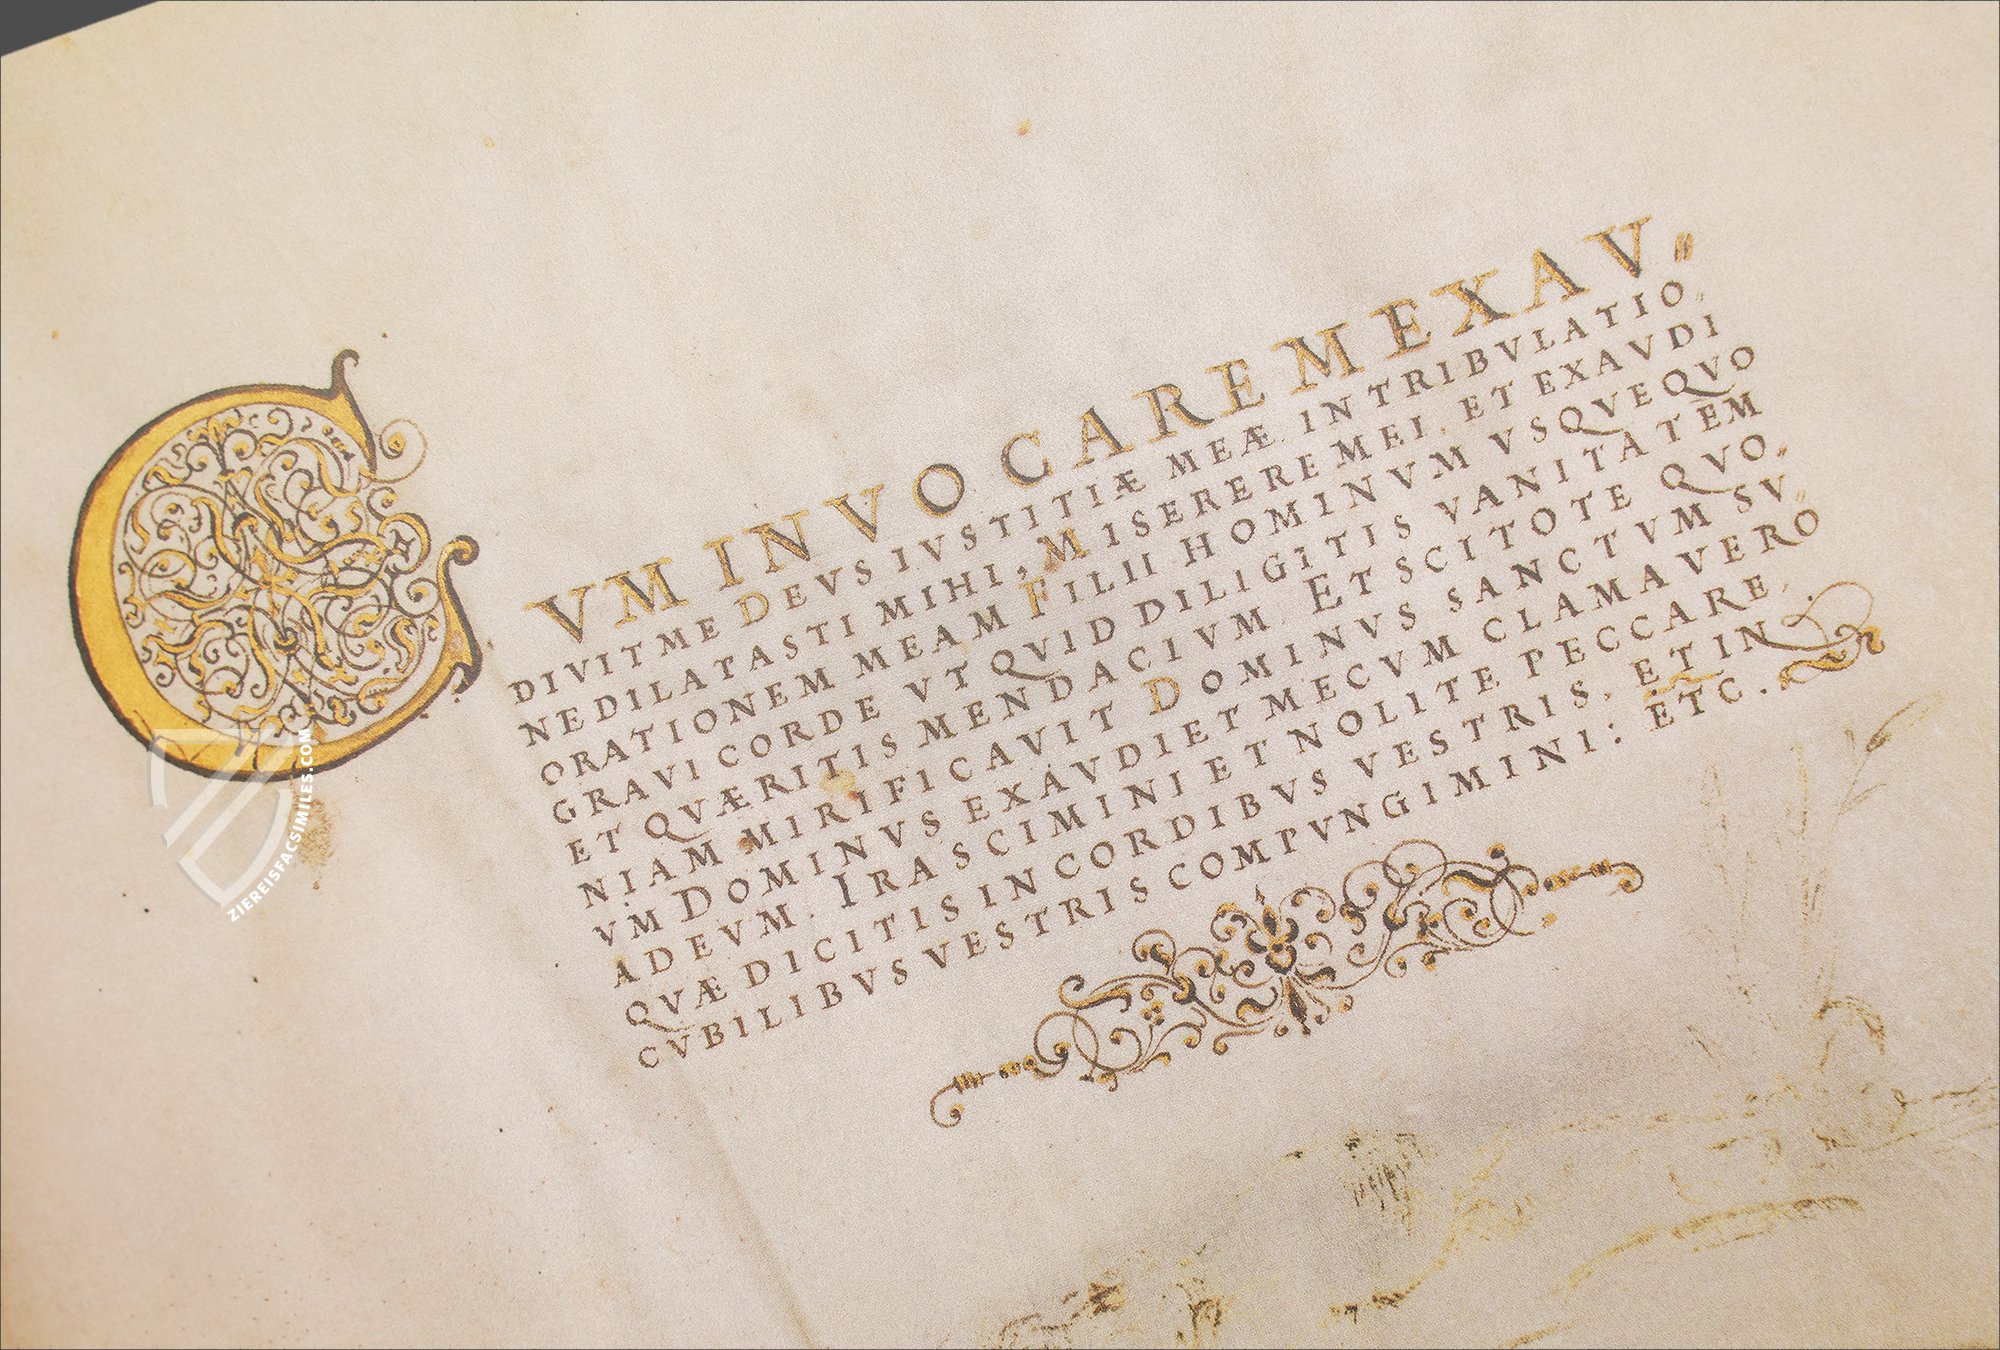 CVM INVOCAREM EXAV⸗
DIVIT ME DEVS IVSTITIÆ MEÆ. IN TRIBVLATIO⸗
NE DILATASTI MIHI, MISERERE MEI. ET EXAVDI
ORATIONEM MEAM FILII HOMINVM VSQVEQVO
GRAVI CORDE VT QVID DILIGITIS VANITATEM
ET QVÆRITIS MENDACIVM. ET SCITOTE QVO⸗
NIAM MIRIFICAVIT DOMINVS SANCTVM SV⸗
VM DOMINVS EXAVDIET ME CVM CLAMAVERO
AD EVM. IRASCIMINI ET NOLITE PECCARE.
QVÆ DICITIS IN CORDIBVS VESTRIS, ET IN
CVBILIBVS VESTRIS COMPVNGIMINI: ETC.
ZIEREISFACSIMILES.COM